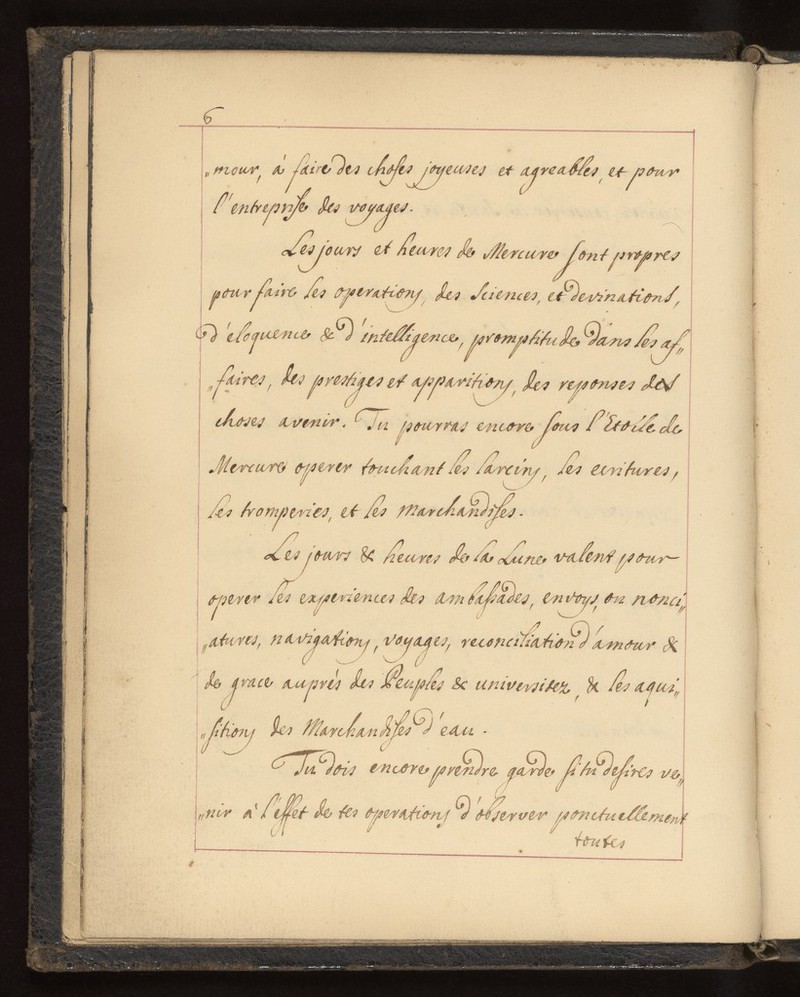 6
„mour, à faire des choses joyeuses et agreables, et pour
l'entreprise des voyages.
Les jours et heures de Mercure sont propres
pour faire les operations, des sciences, et devinations,
d'eloquence & d'intelligence, promptitude dans les af„
„faires, des prestiges et apparitions, des reponses des
choses avenir. Tu pourras encore sous l'Etoile de
Mercure operer touchant les larcins, les ecritures,
les tromperies, et les marchandises.
Les jours & heures de la Lune valent pour
operer les experiences des ambassades, envoys, ou nonci„
„atures, navigations, voyages, reconciliation d'amour &
de grace auprés des Peuples & universitez, & les aqui„
„sitions des Marchandises d'eau.
Tu dois encore prendre garde si tu desires ve„
„nir à l'effet de tes operations d'observer ponctuellement
toutes